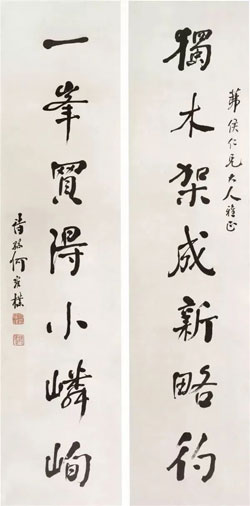 侯仁兄大人雅正
獨木架成新略彴
一峯買得小嶙峋
詩孫何維樸